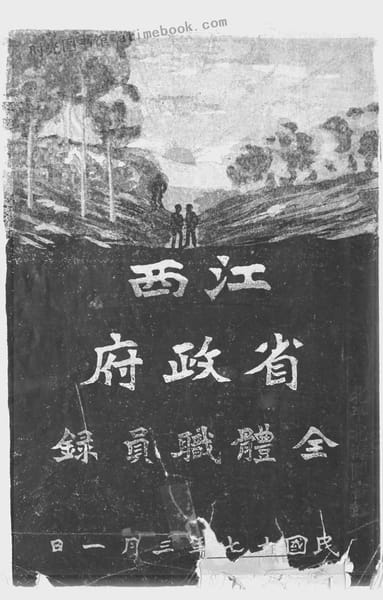 江西
省政府
全體職員録
民國十七年三月一日